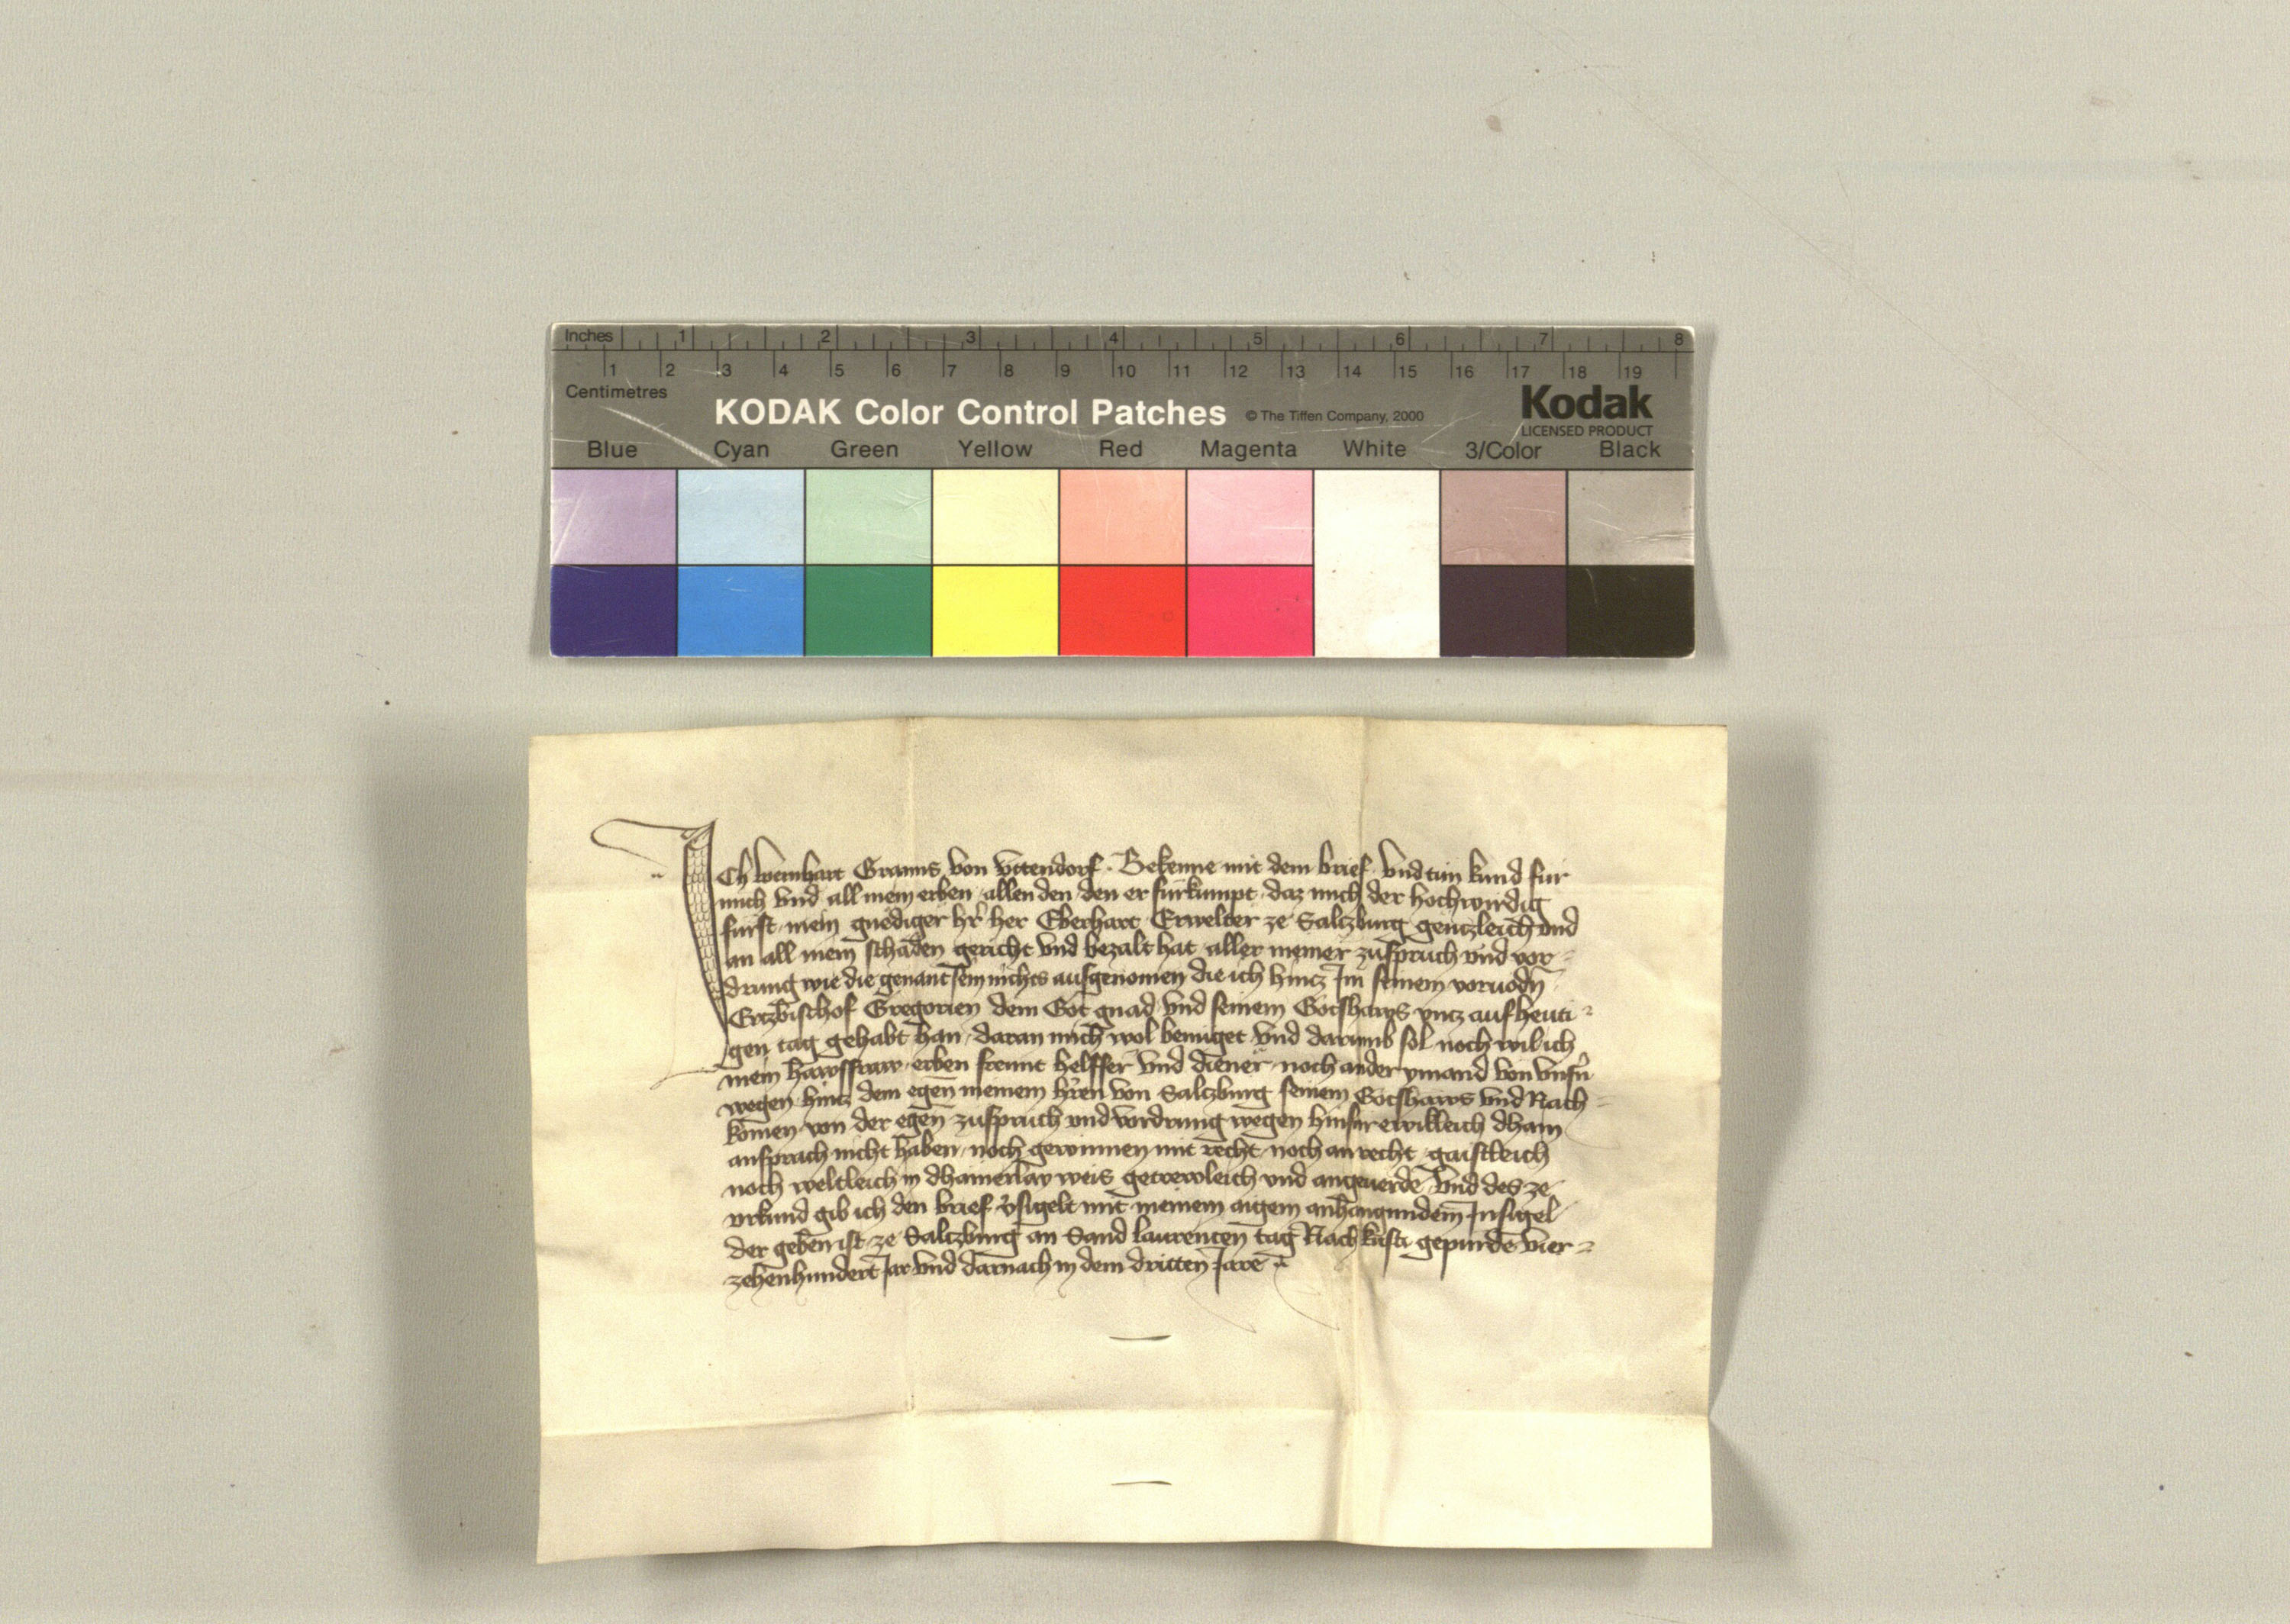 Inches 1 2 3 4 5 6 7 8
1 2 3 4 5 6 7 8 9 10 11 12 13 14 15 16 17 18 19
Centimetres
KODAK Color Control Patches © The Tiffen Company, 2000 Kodak
LICENSED PRODUCT
Blue Cyan Green Yellow Red Magenta White 3/Color Black
ICh weinhart Granns von Vttendorf. Bekenne mit dem brief vnd tun kund für
mich vnd all mein erben allen den den er fürkumpt daz mich der hochwirdig
fürst mein gnediger hr̄ her Eberhart Erwelter ze Saltzburg gentzleich vnd
an all mein schaden gericht vnd bezalt hat aller meiner zuspruch vnd vor-
drung wie die genant sein nichts ausgenomen die ich hintz Jm seinem voruodn̄
Ertzbischof Gregorien dem Got gnad vnd seinem Gotshaws vntz auf heuti-
gen tag gehabt han daran mich wol benüget vnd darumb sol noch wil ich
mein hawsfraw erben freunt helffer vnd diener noch ander ymand von vnsn̄
wegen hintz dem egen̄ meinem hr̄ren von Saltzburg seinem Gotshaws vnd Nach-
komen von der egen̄ zuspruch vnd vordrung wegen hinfür ewikleich dhain
ansprach nicht haben noch gewinnen mit recht noch an recht gaistleich
noch weltleich in dhainerlay weis getrewleich vnd angeuerde Vnd des ze
vrkund gib ich den brief v̄sigelt mit meinem aigem anhangundem Jnsigel
der geben ist ze Saltzburg an Sand laurencen tag Nach kristi gepurde vier-
zehenhundert Jar vnd darnach in dem dritten Jare